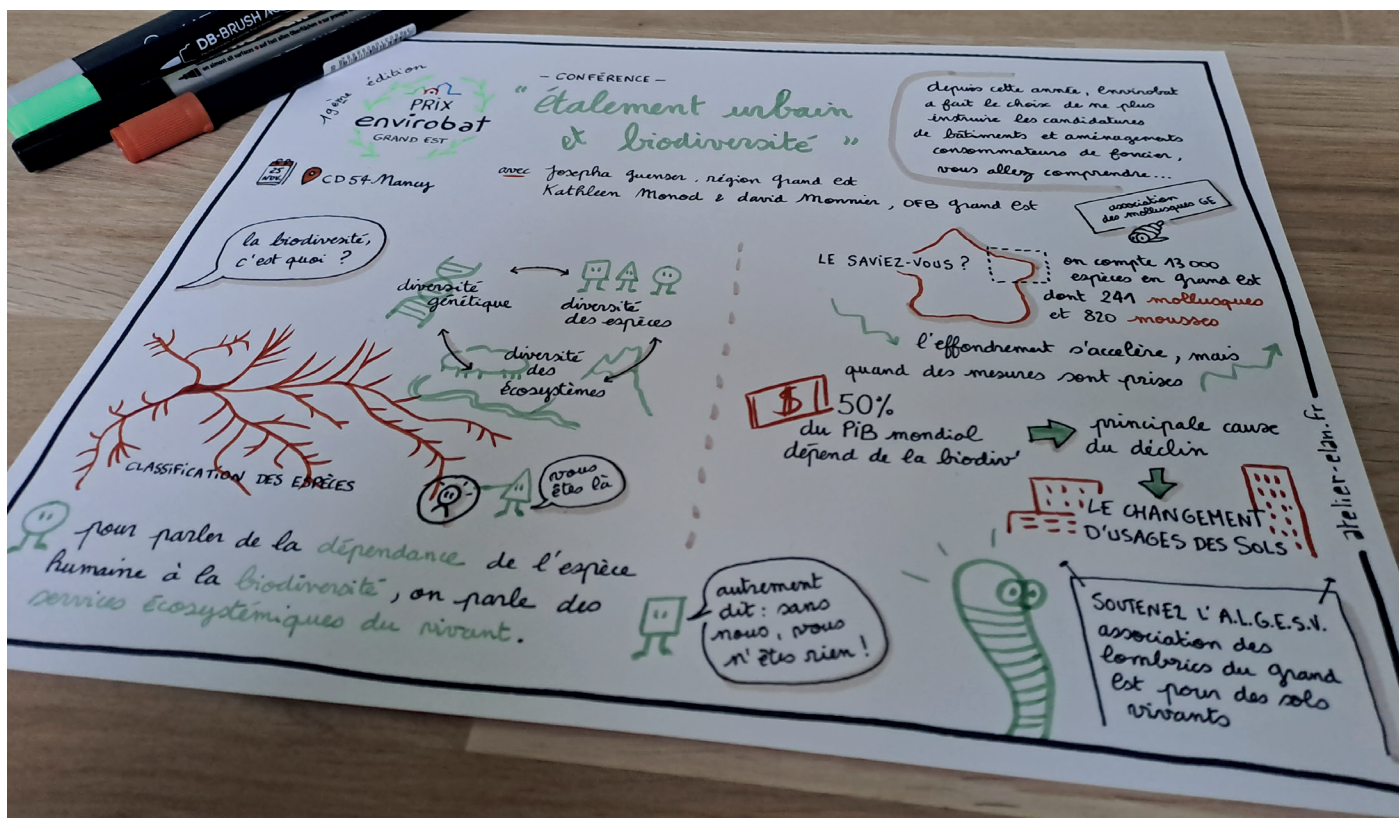 DB-BRUSH
19ème édition
PRIX
envirobat
GRAND EST
25
NOV.
CD54 Nancy
— CONFÉRENCE —
"étalement urbain
et biodiversité"
avec Josepha Guenser, région grand est
Kathleen Monod & david Monnier, OFB grand est
depuis cette année, envirobat
a fait le choix de ne plus
instruire les candidatures
de bâtiments et aménagements
consommateurs de foncier,
vous allez comprendre...
association
des mollusques GE
la biodiversité,
c'est quoi ?
diversité
génétique
diversité
des espèces
diversité
des
écosystèmes
CLASSIFICATION DES ESPÈCES
vous
êtes là
pour parler de la dépendance de l'espèce
humaine à la biodiversité, on parle des
services écosystémiques du vivant.
autrement
dit : sans
nous, vous
n'êtes rien !
LE SAVIEZ-VOUS ?
on compte 13 000
espèces en grand est
dont 241 mollusques
et 820 mousses
l'effondrement s'accelère, mais
quand des mesures sont prises
$ 50%
du PiB mondial
dépend de la biodiv'
principale cause
du déclin
LE CHANGEMENT
D'USAGES DES SOLS
SOUTENEZ L'A.L.G.E.S.V.
association des
lombrics du grand
est pour des sols
vivants
atelier-elan.fr